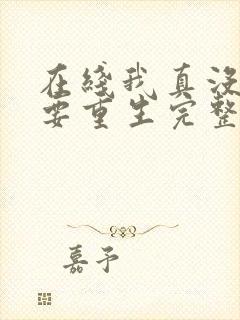 在綫我真没
要重生完整
嘉予